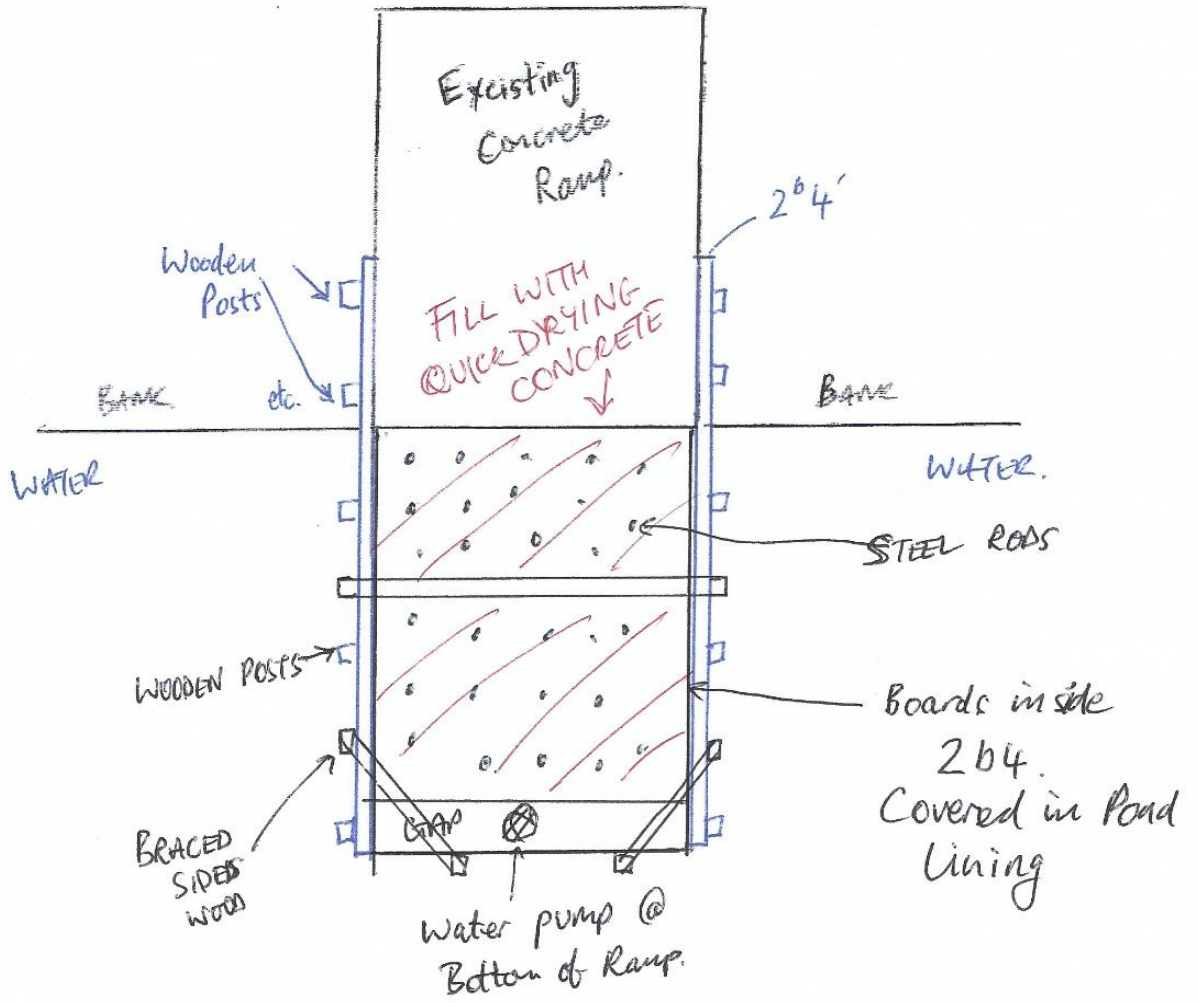 Excisting
Concrete
Ramp.
2b4'
Wooden
Posts
FILL WITH
QUICK DRYING
CONCRETE
etc.
BANK
BANK
WATER
WATER.
STEEL RODS
WOODEN POSTS
Boards inside
2b4.
Covered in Pond
Lining
GAP
BRACED
SIDES
WOOD
Water pump @
Bottom of Ramp.